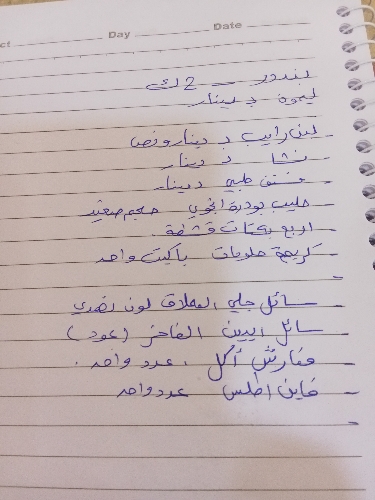 ct Day Date
بندور — 2 ك
ليمون بدينار
لبن رايب بدينار ونص
نشا بدينار
فستق حلبي دينار
حليب بودرة انجوي حجم صغير
اربع بكتات قشطة
كريمة حلويات باكيت واحد
سائل جلي العملاق لون
سائل ايدين الفاخر (عود)
مفارش أكل، عدد واحد.
فاين اطلس عدد واحد